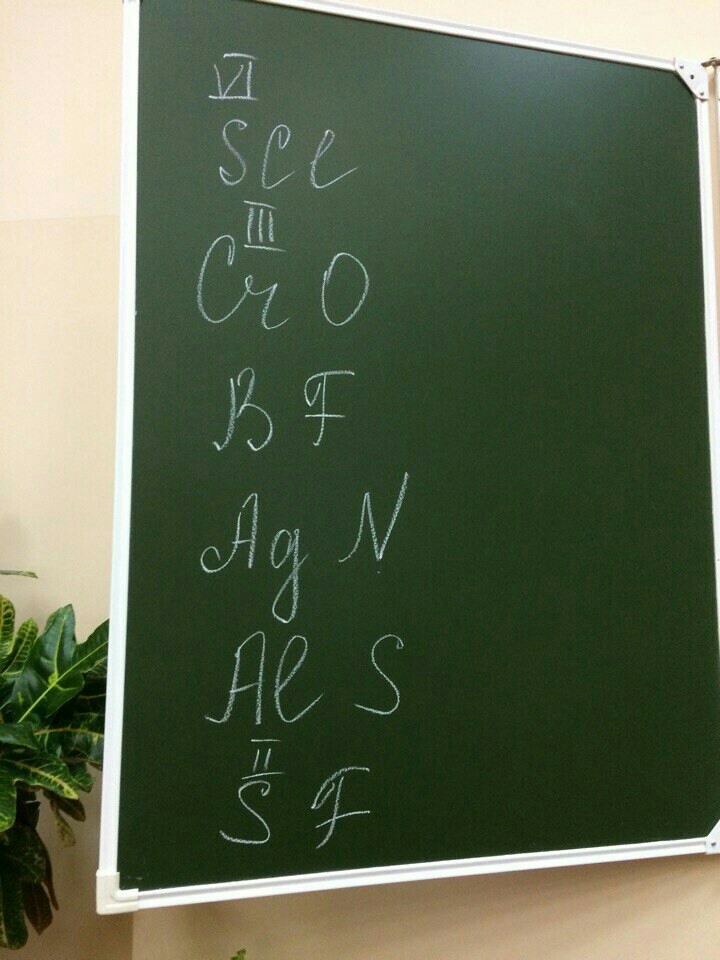 VI
SCl
III
Cr O
B F
Ag N
Al S
II
S F